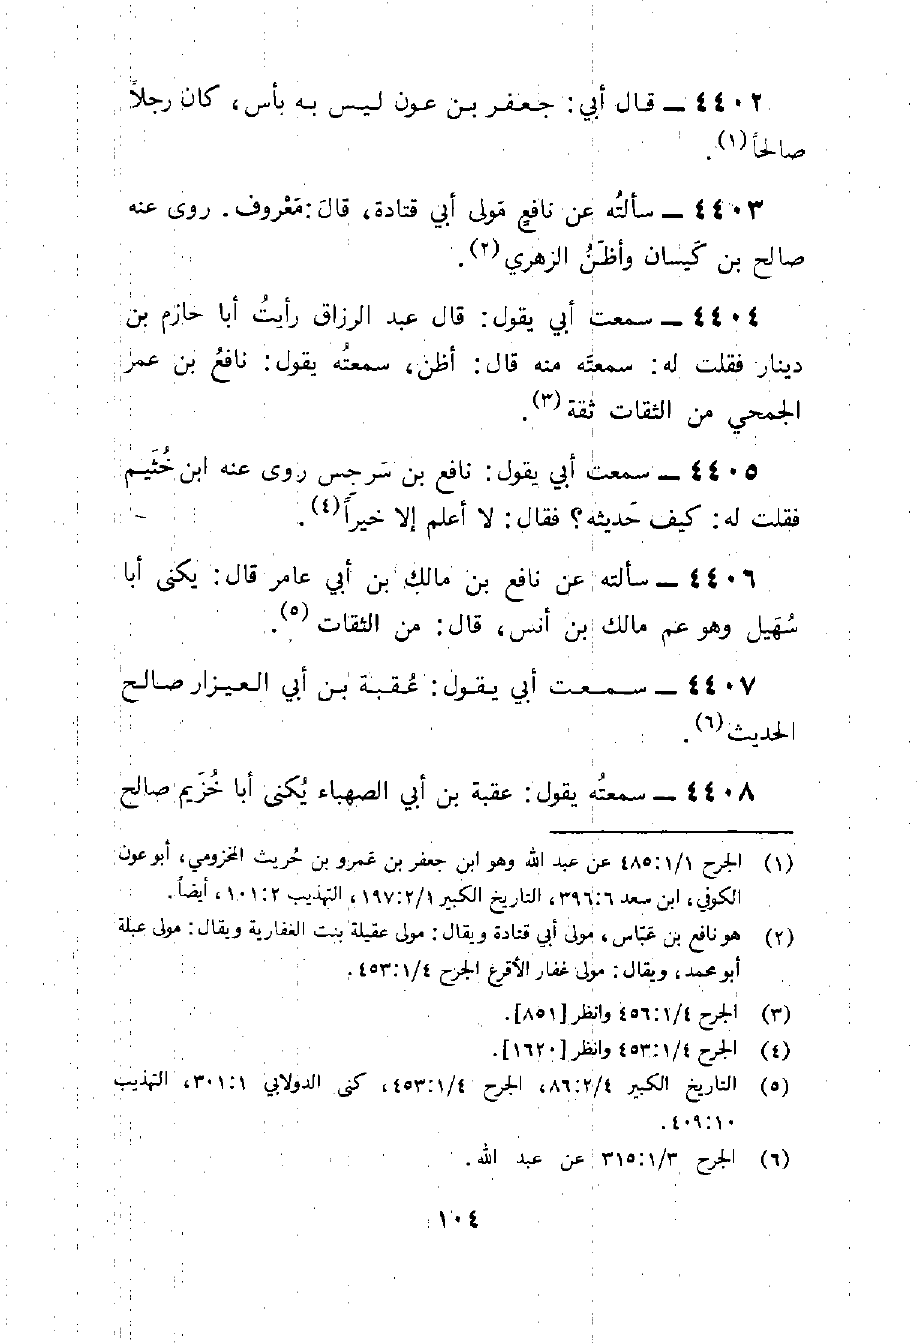 ٤٤٠٢ ــ قال أبي: جعفر بن عون ليس به بأس، كان رجلاً
صالحاً(١).
٤٤٠٣ ــ سألتُه عن نافعٍ مَولى أبي قتادة، قالَ:مَعْروف. روى عنه
صالح بن كَيسان وأظنُ الزهري(٢).
٤٤٠٤ ــ سمعت أبي يقول: قال عبد الرزاق رأيتُ أبا حازم بن
دينار فقلت له: سمعتَه منه قال: أظن، سمعتُه يقول: نافعُ بن عمر
الجمحي من الثقات ثقة(٣).
٤٤٠٥ ــ سمعت أبي يقول: نافع بن سَرجِس روى عنه ابن خُثَيم
فقلت له: كيف حَديثه؟ فقال: لا أعلم إلا خيراً(٤).
٤٤٠٦ ــ سألته عن نافع بن مالك بن أبي عامر قال: يكنى أبا
سُهَيل وهو عم مالك بن أنس، قال: من الثقات (٥).
٤٤٠٧ ــ سمعت أبي يقول: عُقبة بن أبي العيزار صالح
الحديث(٦).
٤٤٠٨ ــ سمعتُه يقول: عقبة بن أبي الصهباء يُكنى أبا خُزَيم صالح
(١) الجرح ٤٨٥:١/١ عن عبد الله وهو ابن جعفر بن عَمرو بن حُريث المخزومي، أبو عون
الكوفي، ابن سعد ٣٩٦:٦، التاريخ الكبير ١٩٧:٢/١، التهذيب ١٠١:٢، أيضاً.
(٢) هو نافع بن عَبّاس، مولى أبي قتادة ويقال: مولى عقيلة بنت الغفارية ويقال: مولى عبلة
أبو محمد، ويقال: مولى غفار الأقرع الجرح ٤٥٣:١/٤.
(٣) الجرح ٤٥٦:١/٤ وانظر [٨٥١].
(٤) الجرح ٤٥٣:١/٤ وانظر [١٦٢٠].
(٥) التاريخ الكبير ٨٦:٢/٤، الجرح ٤٥٣:١/٤، كنى الدولابي ٣٠١:١، التهذيب
٤٠٩:١٠.
(٦) الجرح ٣١٥:١/٣ عن عبد الله.
١٠٤